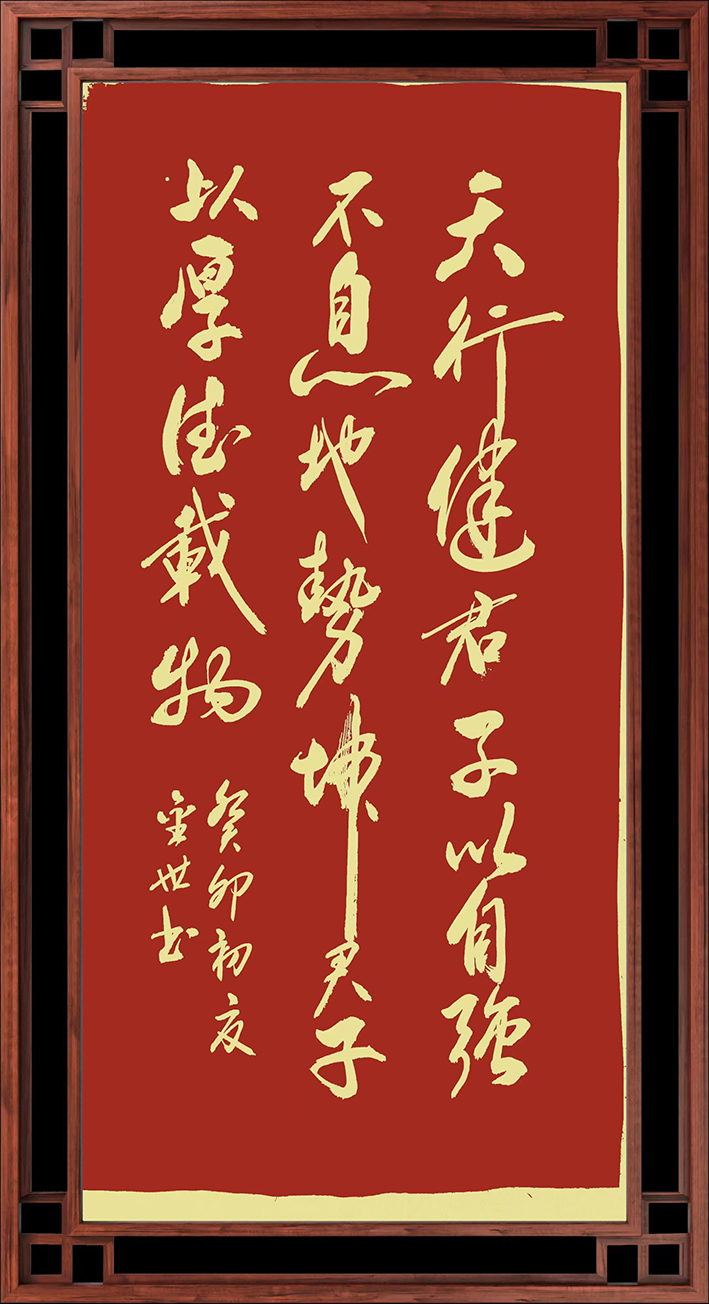 天行健君子以自強
不息地勢坤君子
以厚德載物
癸卯初夏
世书